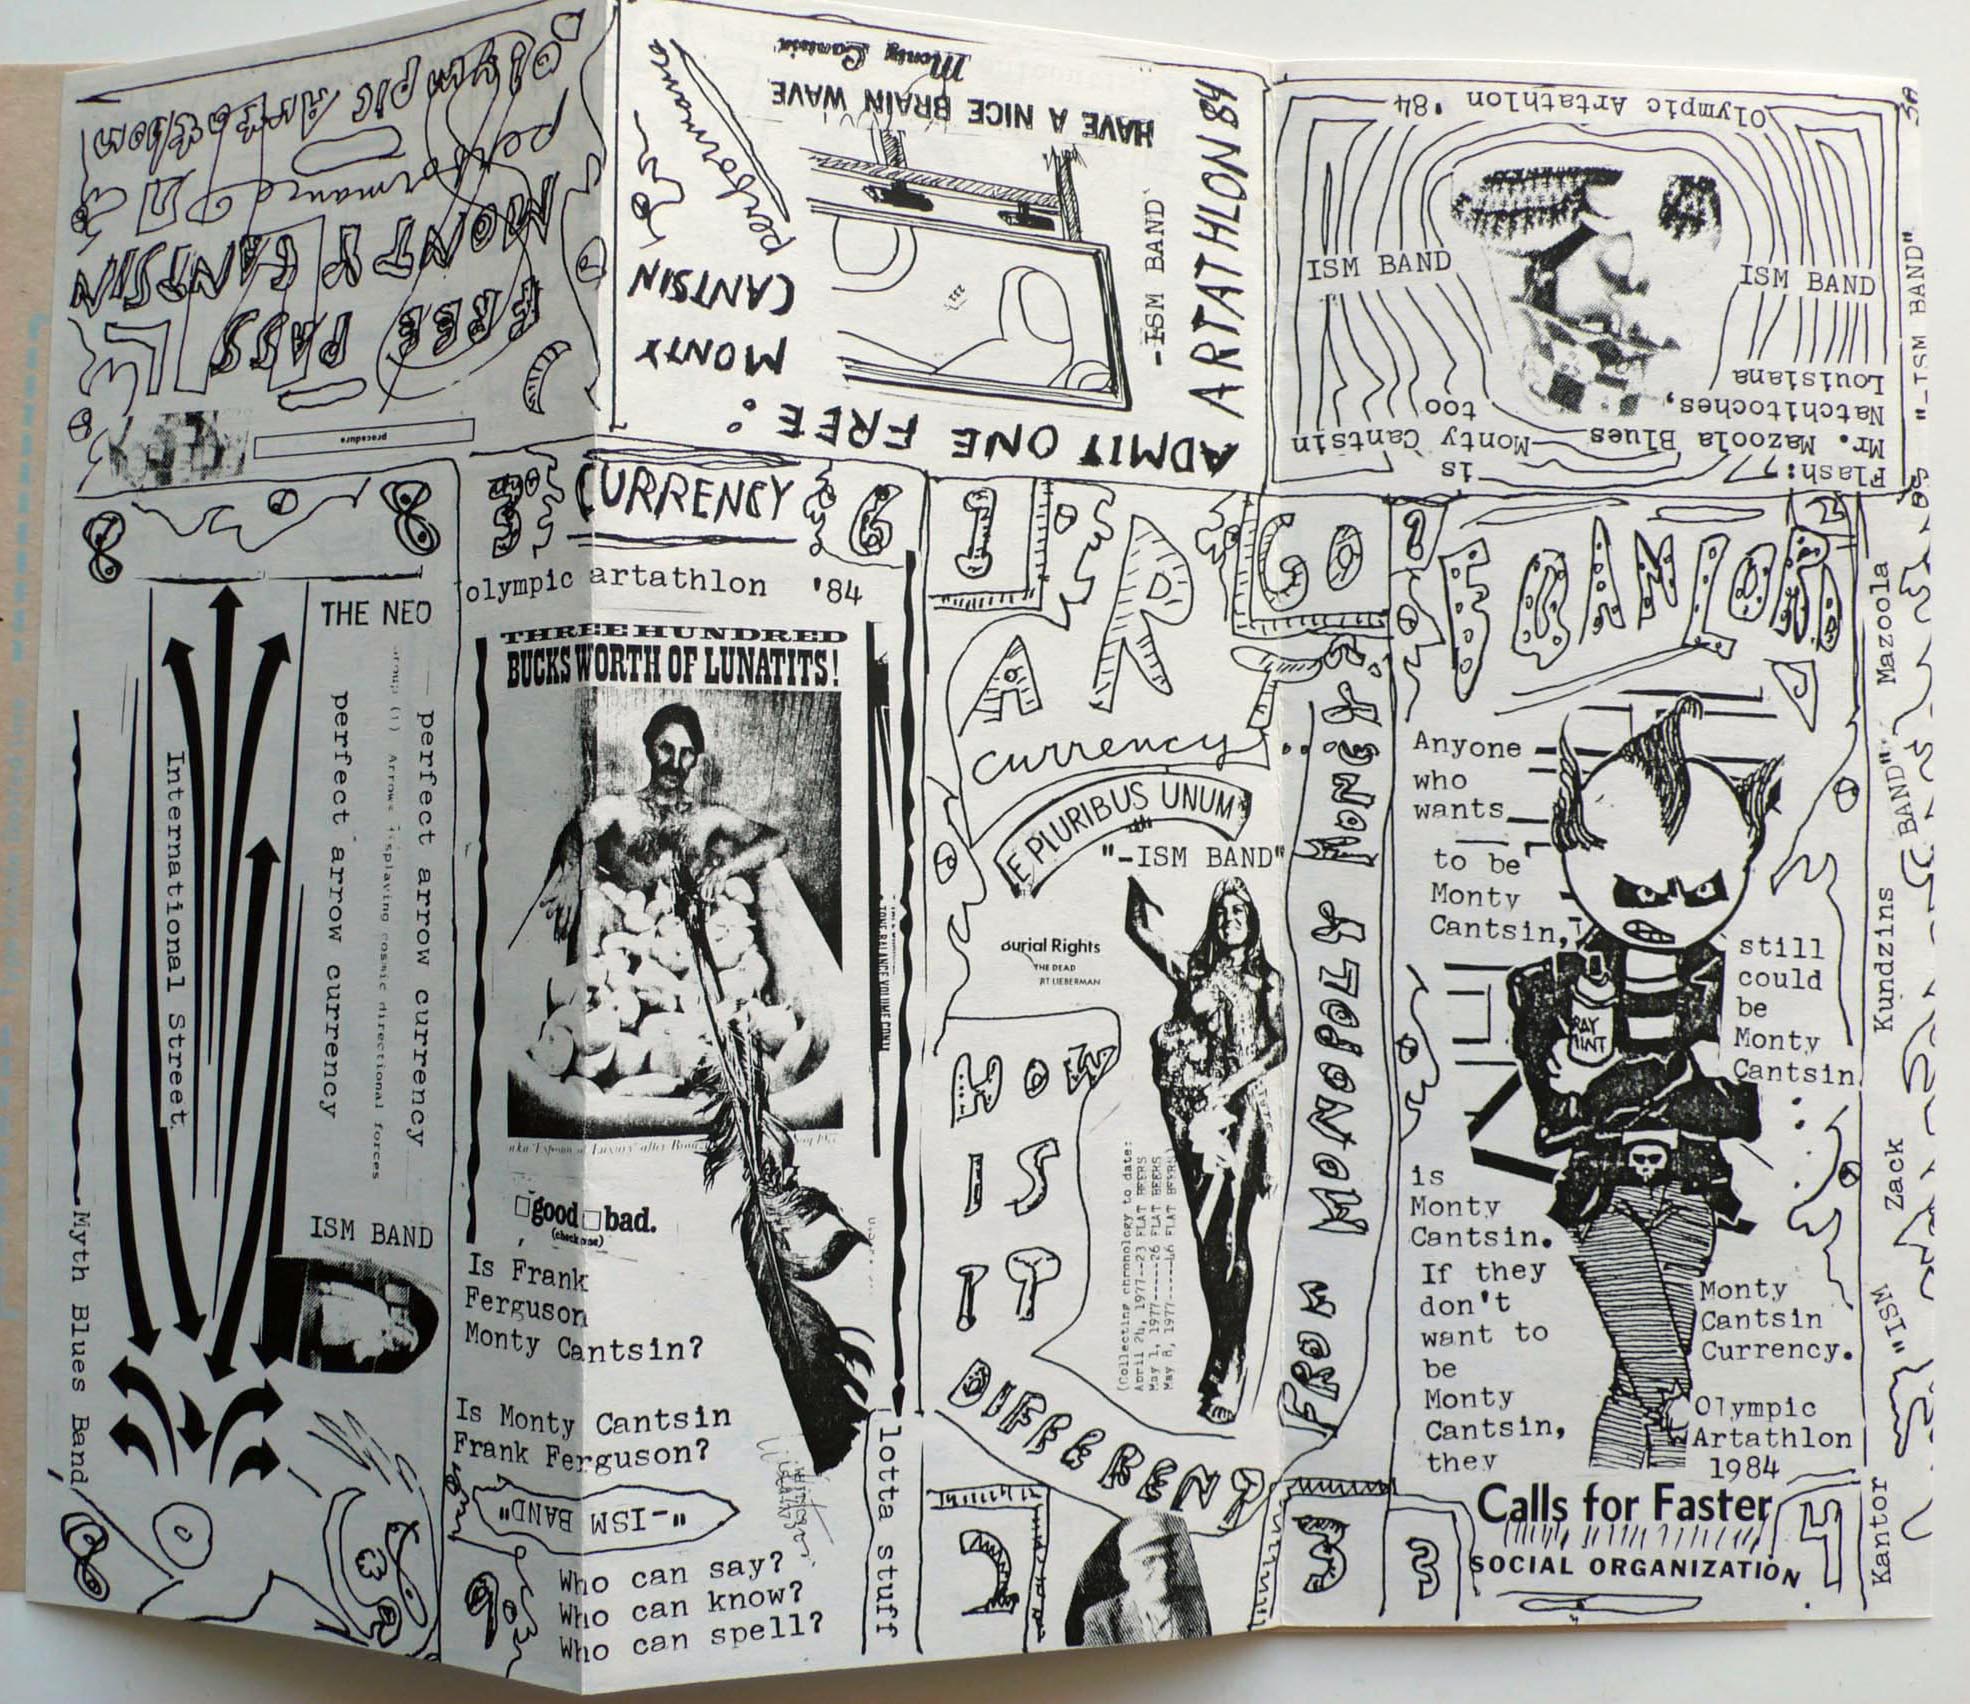 OLYMPIC Artathlon
performance
MONTY CANTSIN
FREE PASS
procedure
Monty Cantsin
HAVE A NICE BRAIN WAVE
performance
MONTY
CANTSIN
-ISM BAND
ARTATHLON 84
ADMIT ONE FREE:
Olympic Artathlon '84
ISM BAND
ISM BAND
Flash:
Mr. Mazoola Blues
Natchitoches,
Louisiana
is
Monty Cantsin
too
THE NEO
perfect arrow currency
Arrows displaying cosmic directional forces
perfect arrow currency
International Street
ISM BAND
Myth Blues Band
CURRENCY
6
olympic artathlon '84
THREE HUNDRED
BUCKS WORTH OF LUNATITS!
TONE BALANCE VOLUME CONT
good bad.
(check one)
Is Frank
Ferguson
Monty Cantsin?
Is Monty Cantsin
Frank Ferguson?
"-ISM BAND"
Who can say?
Who can know?
Who can spell?
lotta stuff
ART
currency
E PLURIBUS UNUM
"-ISM BAND"
urial Rights
THE DEAD
RT LIEBERMAN
HOW
IS
IT
DIFFERENT
FROM MONOPOLY MONEY?
(Collecting chronology to date:
April 24, 1977--23 FLAT BEERS
May 1, 1977-----26 FLAT BEERS
May 8, 1977-----16 FLAT BEERS)
2
3
Anyone
who
wants
to be
Monty
Cantsin,
still
could
be
Monty
Cantsin
is
Monty
Cantsin.
If they
don't
want to
be
Monty
Cantsin,
they
Monty
Cantsin
Currency.
Olympic
Artathlon
1984
Calls for Faster
SOCIAL ORGANIZATION
3
4
"-ISM BAND"
Mazoola
BAND"
Kundzins
Zack
"ISM
Kantor